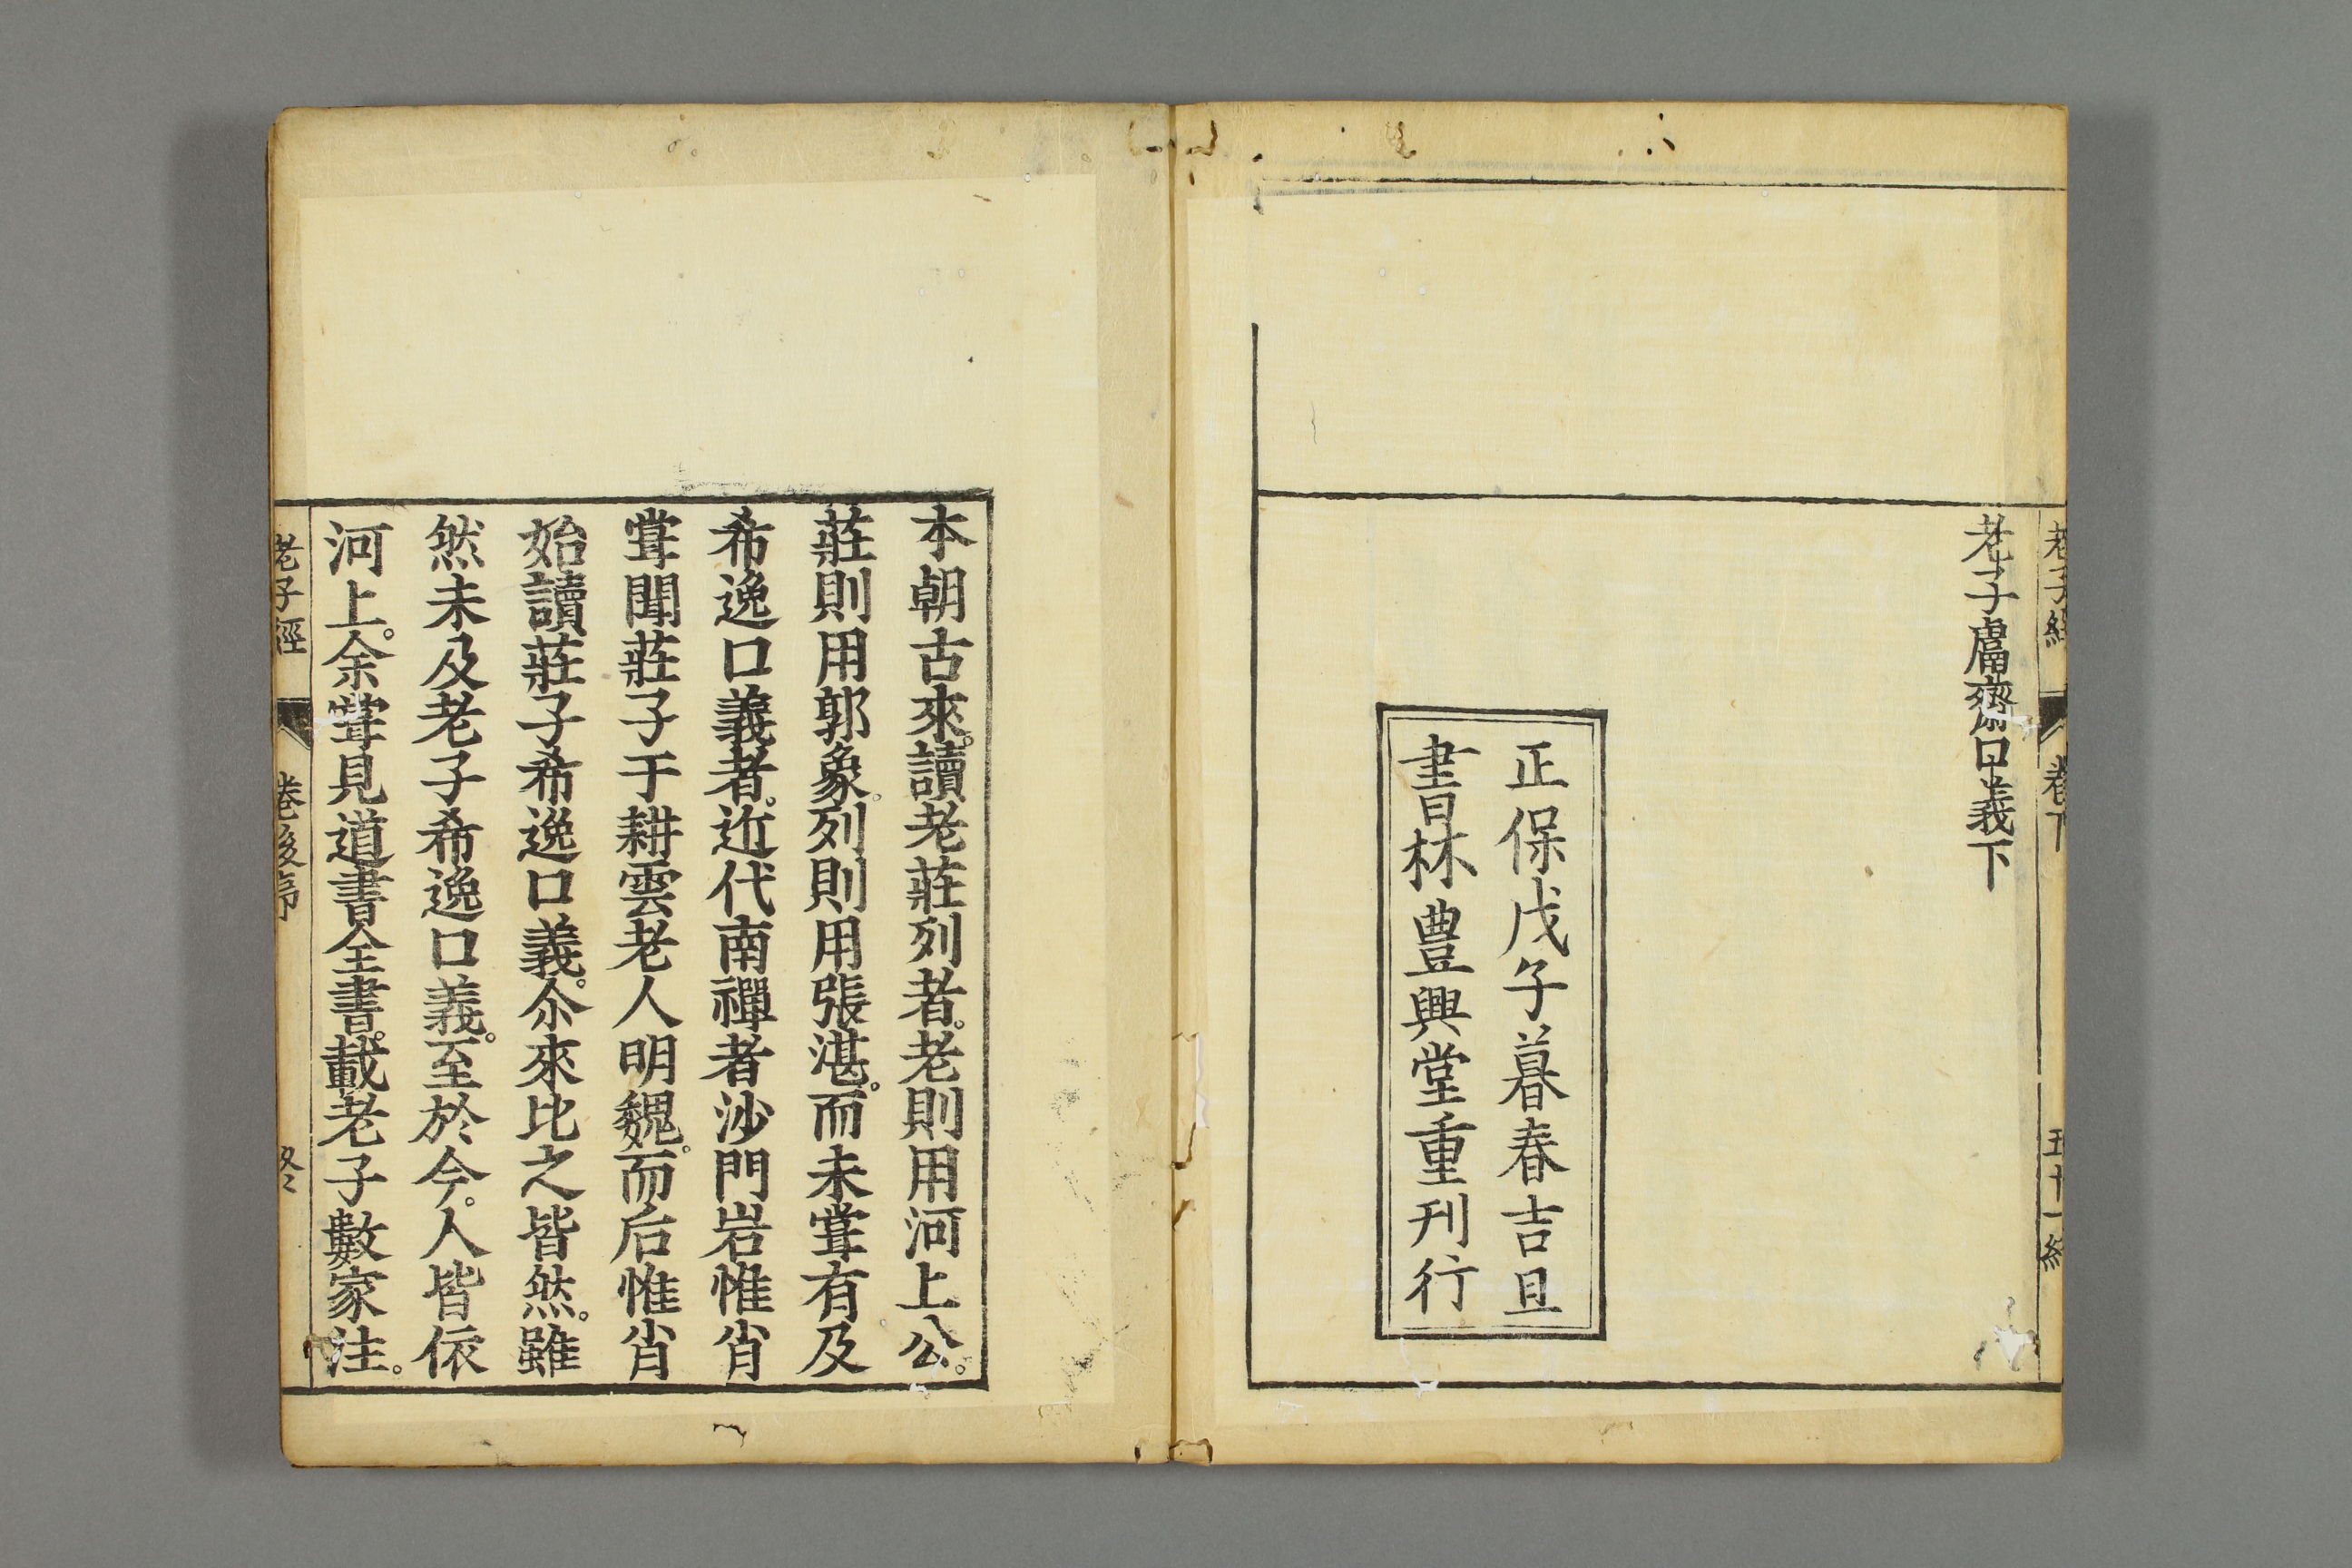 老子經
卷下
五十一終
老子鬳齋口義下
正保戊子暮春吉旦
書林豊興堂重刊行
本朝古來。讀老莊列者。老則用河上公。
莊則用郭象。列則用張湛。而未甞有及
希逸口義者。近代南禪者沙門岩惟肖
甞聞莊子于耕雲老人明魏。而后惟肖
始讀莊子希逸口義。尒來比之皆然。雖
然未及老子希逸口義。至於今。人皆依
河上。余甞見道書全書。載老子數家注。
老子經
卷後序
終